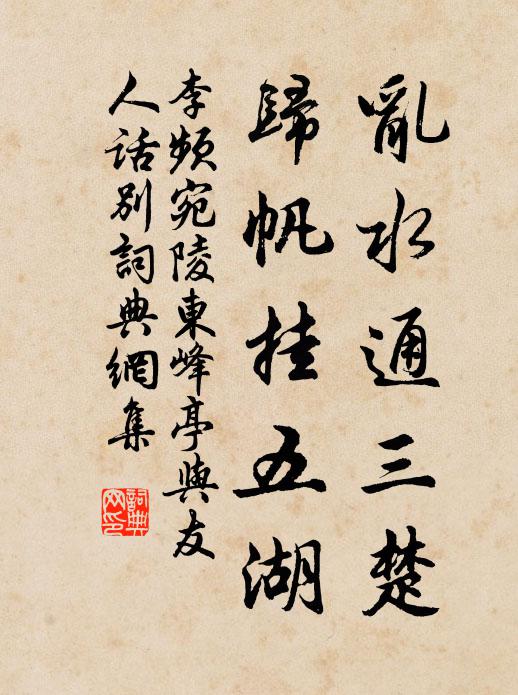 亂水通三楚
歸帆挂五湖
李頻宛陵東峰亭與友
人話別詞典網集
詞典網印